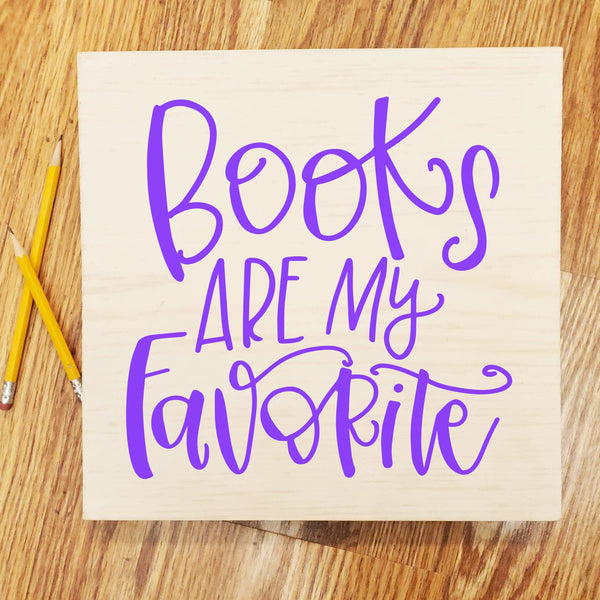 Books
ARE MY
Favorite